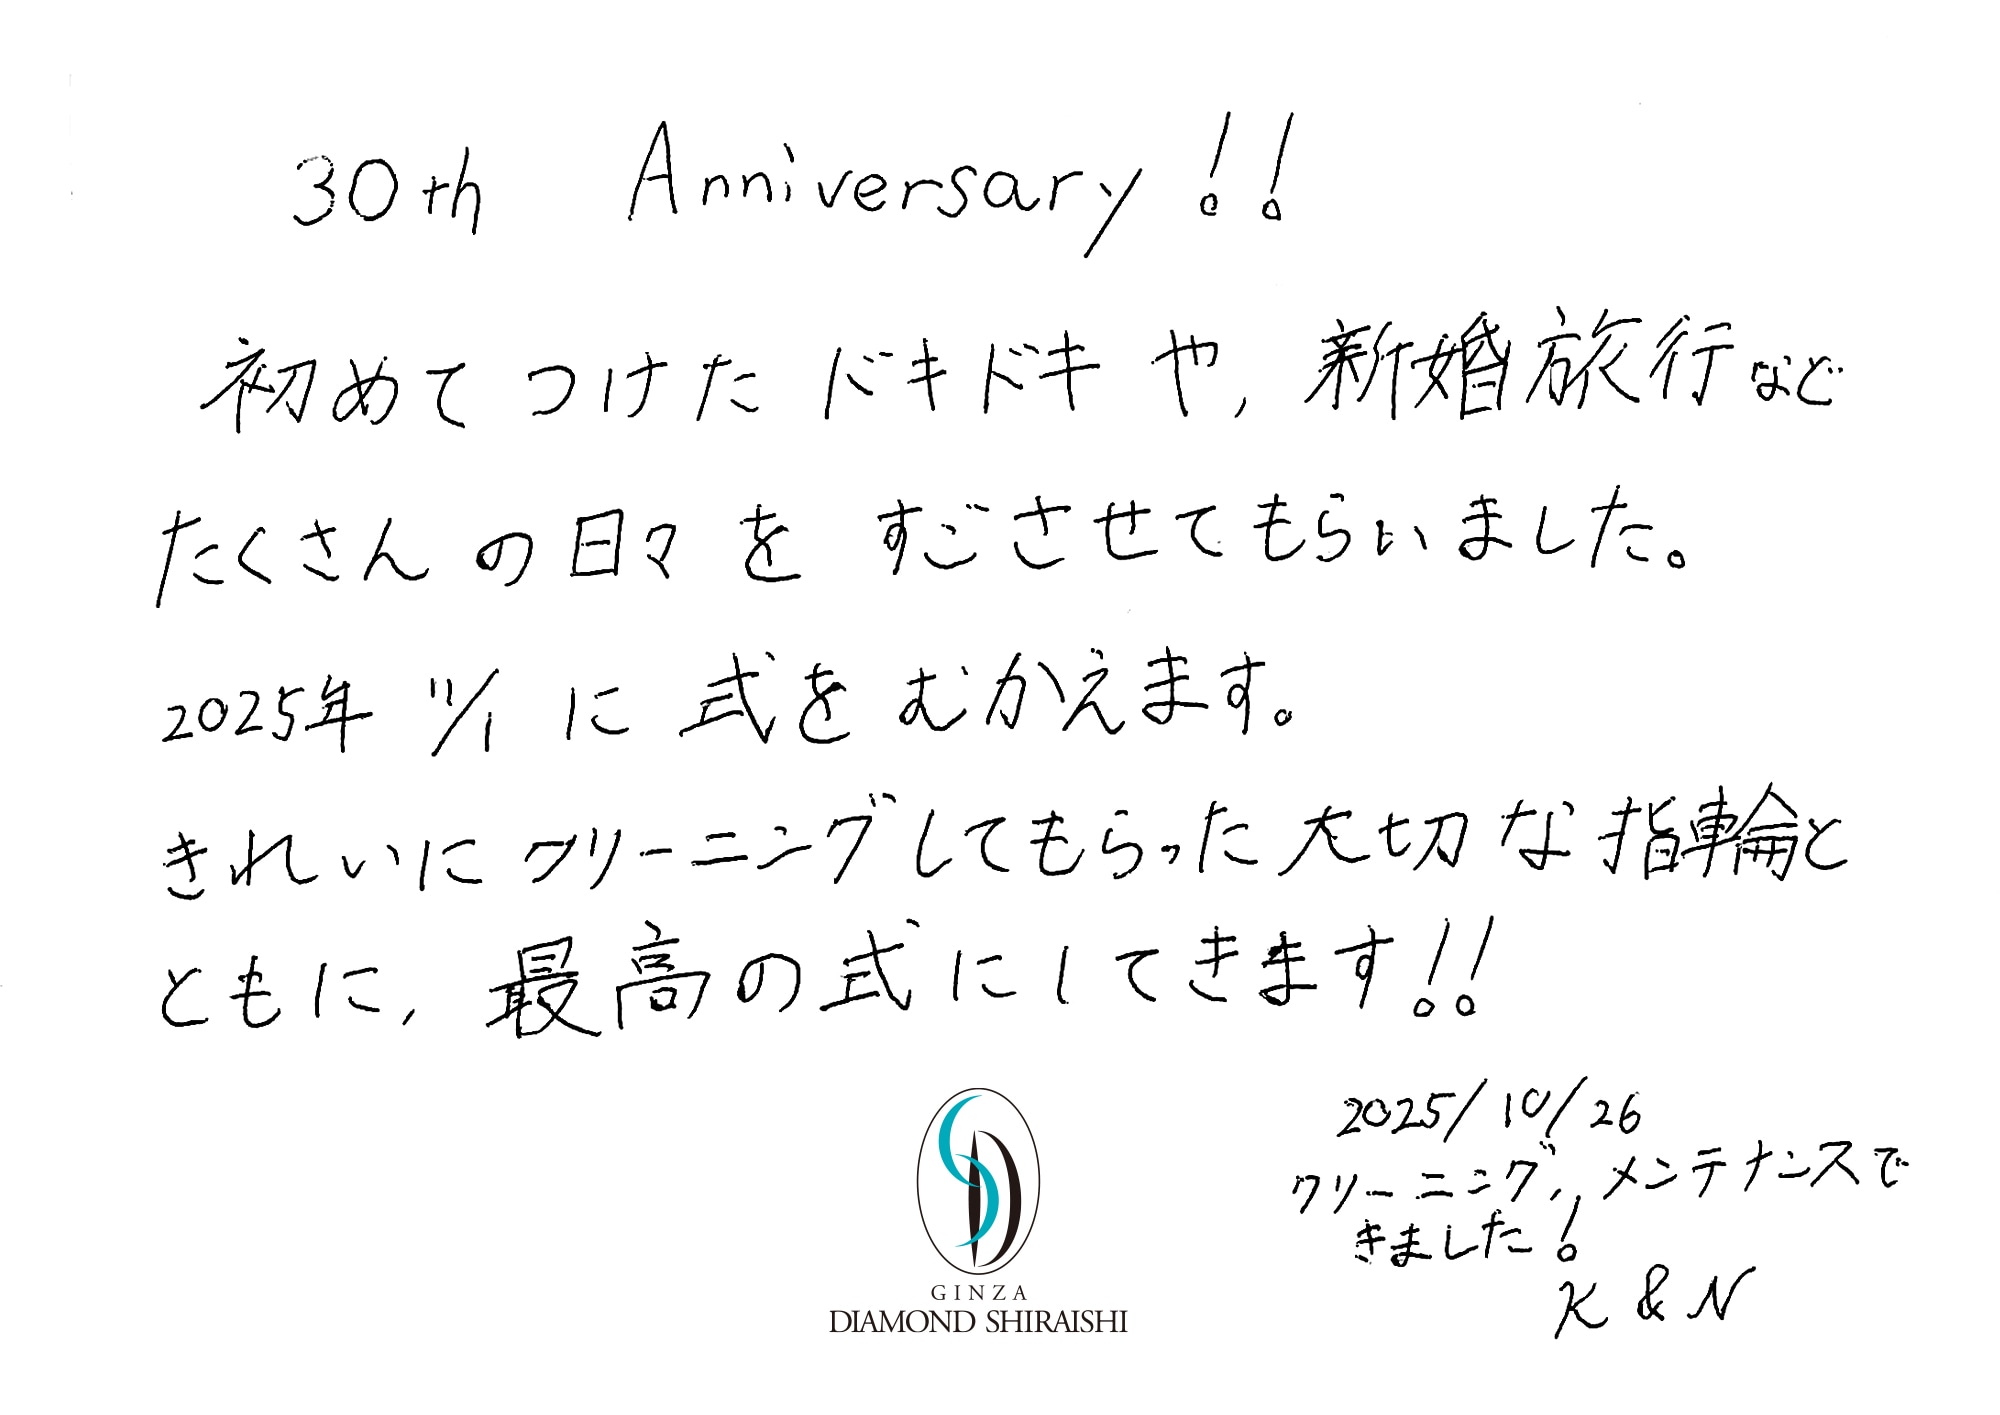 30th Anniversary!!
初めてつけたドキドキや,新婚旅行など
たくさんの日々をすごさせてもらいました。
2025年 11/1 に式をむかえます。
きれいにクリーニングしてもらった大切な指輪と
ともに,最高の式にしてきます!!
2025/10/26
クリーニング,メンテナンスで
きました!
K & N
GINZA
DIAMOND SHIRAISHI